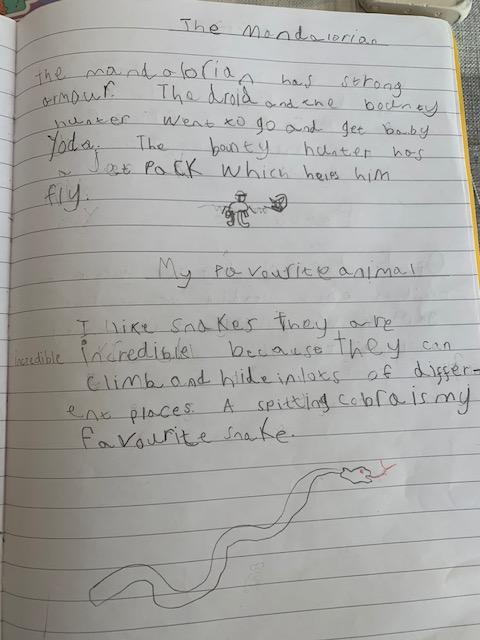 The Mandalorian
the mandalorian has strong
armour. The droid and the bounty
hunter went to go and get baby
Yoda. The bounty hunter has
a Jet Pack which helps him
fly.
My favourite animal
I like snakes they are
incredible incredible because they can
climb and hide in lots of differ-
ent places. A spitting cobra is my
favourite snake.